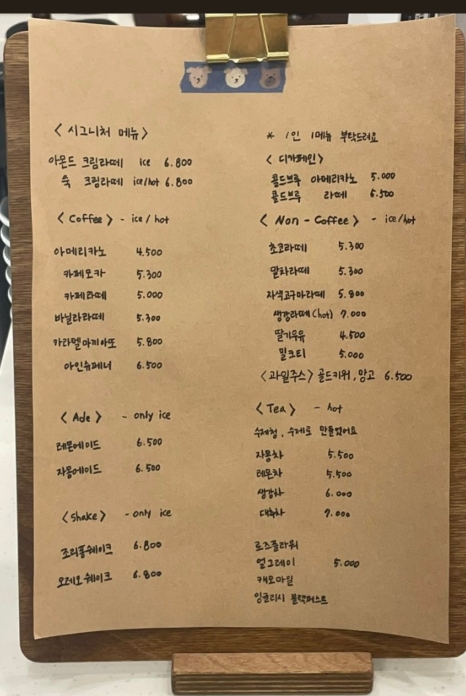 <시그니처 메뉴>
아몬드 크림라떼 ice 6.800
쑥 크림라떼 ice/hot 6.800
<Coffee> - ice/hot
아메리카노 4.500
카페모카 5.300
카페라떼 5.000
바닐라라떼 5.300
카라멜마끼아또 5.800
아인슈페너 6.500
<Ade> - only ice
레몬에이드 6.500
자몽에이드 6.500
<Shake> - only ice
조리퐁쉐이크 6.800
오레오쉐이크 6.800
* 1인 1메뉴 부탁드려요
<디카페인>
콜드브루 아메리카노 5.000
콜드브루 라떼 5.500
<Non-Coffee> - ice/hot
초코라떼 5.300
말차라떼 5.300
자색고구마라떼 5.800
생강라떼(hot) 7.000
딸기우유 4.500
밀크티 5.000
<과일주스> 골드키위, 망고 6.500
<Tea> - hot
수제청, 수제로 만들었어요
자몽차 5.500
레몬차 5.500
생강차 6.000
대추차 7.000
로즈플라워
얼그레이 5.000
캐모마일
잉글리시 블랙퍼스트